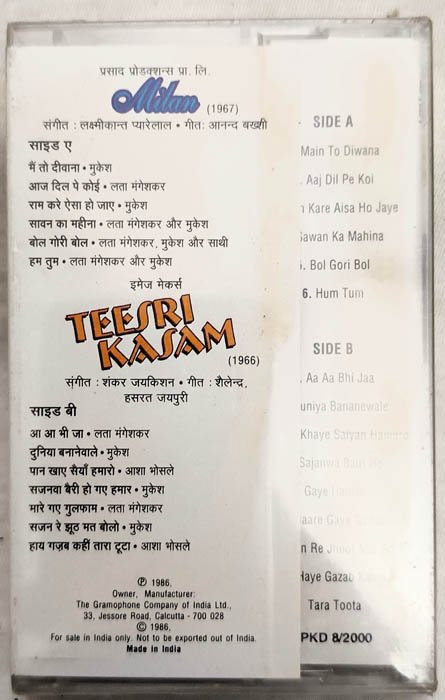 प्रसाद प्रोडक्शन्स प्रा. लि.
Milan (1967)
संगीत : लक्ष्मीकान्त प्यारेलाल • गीत: आनन्द बख्शी
साइड ए
मैं तो दीवाना • मुकेश
आज दिल पे कोई • लता मंगेशकर
राम करे ऐसा हो जाए • मुकेश
सावन का महीना • लता मंगेशकर और मुकेश
बोल गोरी बोल • लता मंगेशकर, मुकेश और साथी
हम तुम • लता मंगेशकर और मुकेश
इमेज मेकर्स
TEESRI
KASAM
(1966)
संगीत : शंकर जयकिशन • गीत : शैलेन्द्र,
हसरत जयपुरी
साइड बी
आ आ भी जा • लता मंगेशकर
दुनिया बनानेवाले • मुकेश
पान खाए सैयाँ हमारो • आशा भोसले
सजनवा बैरी हो गए हमार • मुकेश
मारे गए गुलफाम • लता मंगेशकर
सजन रे झूठ मत बोलो • मुकेश
हाय गज़ब कहीं तारा टूटा • आशा भोसले
℗ 1986,
Owner, Manufacturer:
The Gramophone Company of India Ltd.,
33, Jessore Road, Calcutta - 700 028
© 1986,
For sale in India only. Not to be exported out of India.
Made in India
SIDE A
Main To Diwana
Aaj Dil Pe Koi
Kare Aisa Ho Jaye
Sawan Ka Mahina
Bol Gori Bol
6. Hum Tum
SIDE B
Aa Aa Bhi Jaa
uniya Bananewale
Khaye Saiyan
Sajanwa
Gaye
aare Gaye
n Re
Haye Gazab
Tara Toota
PKD 8/2000